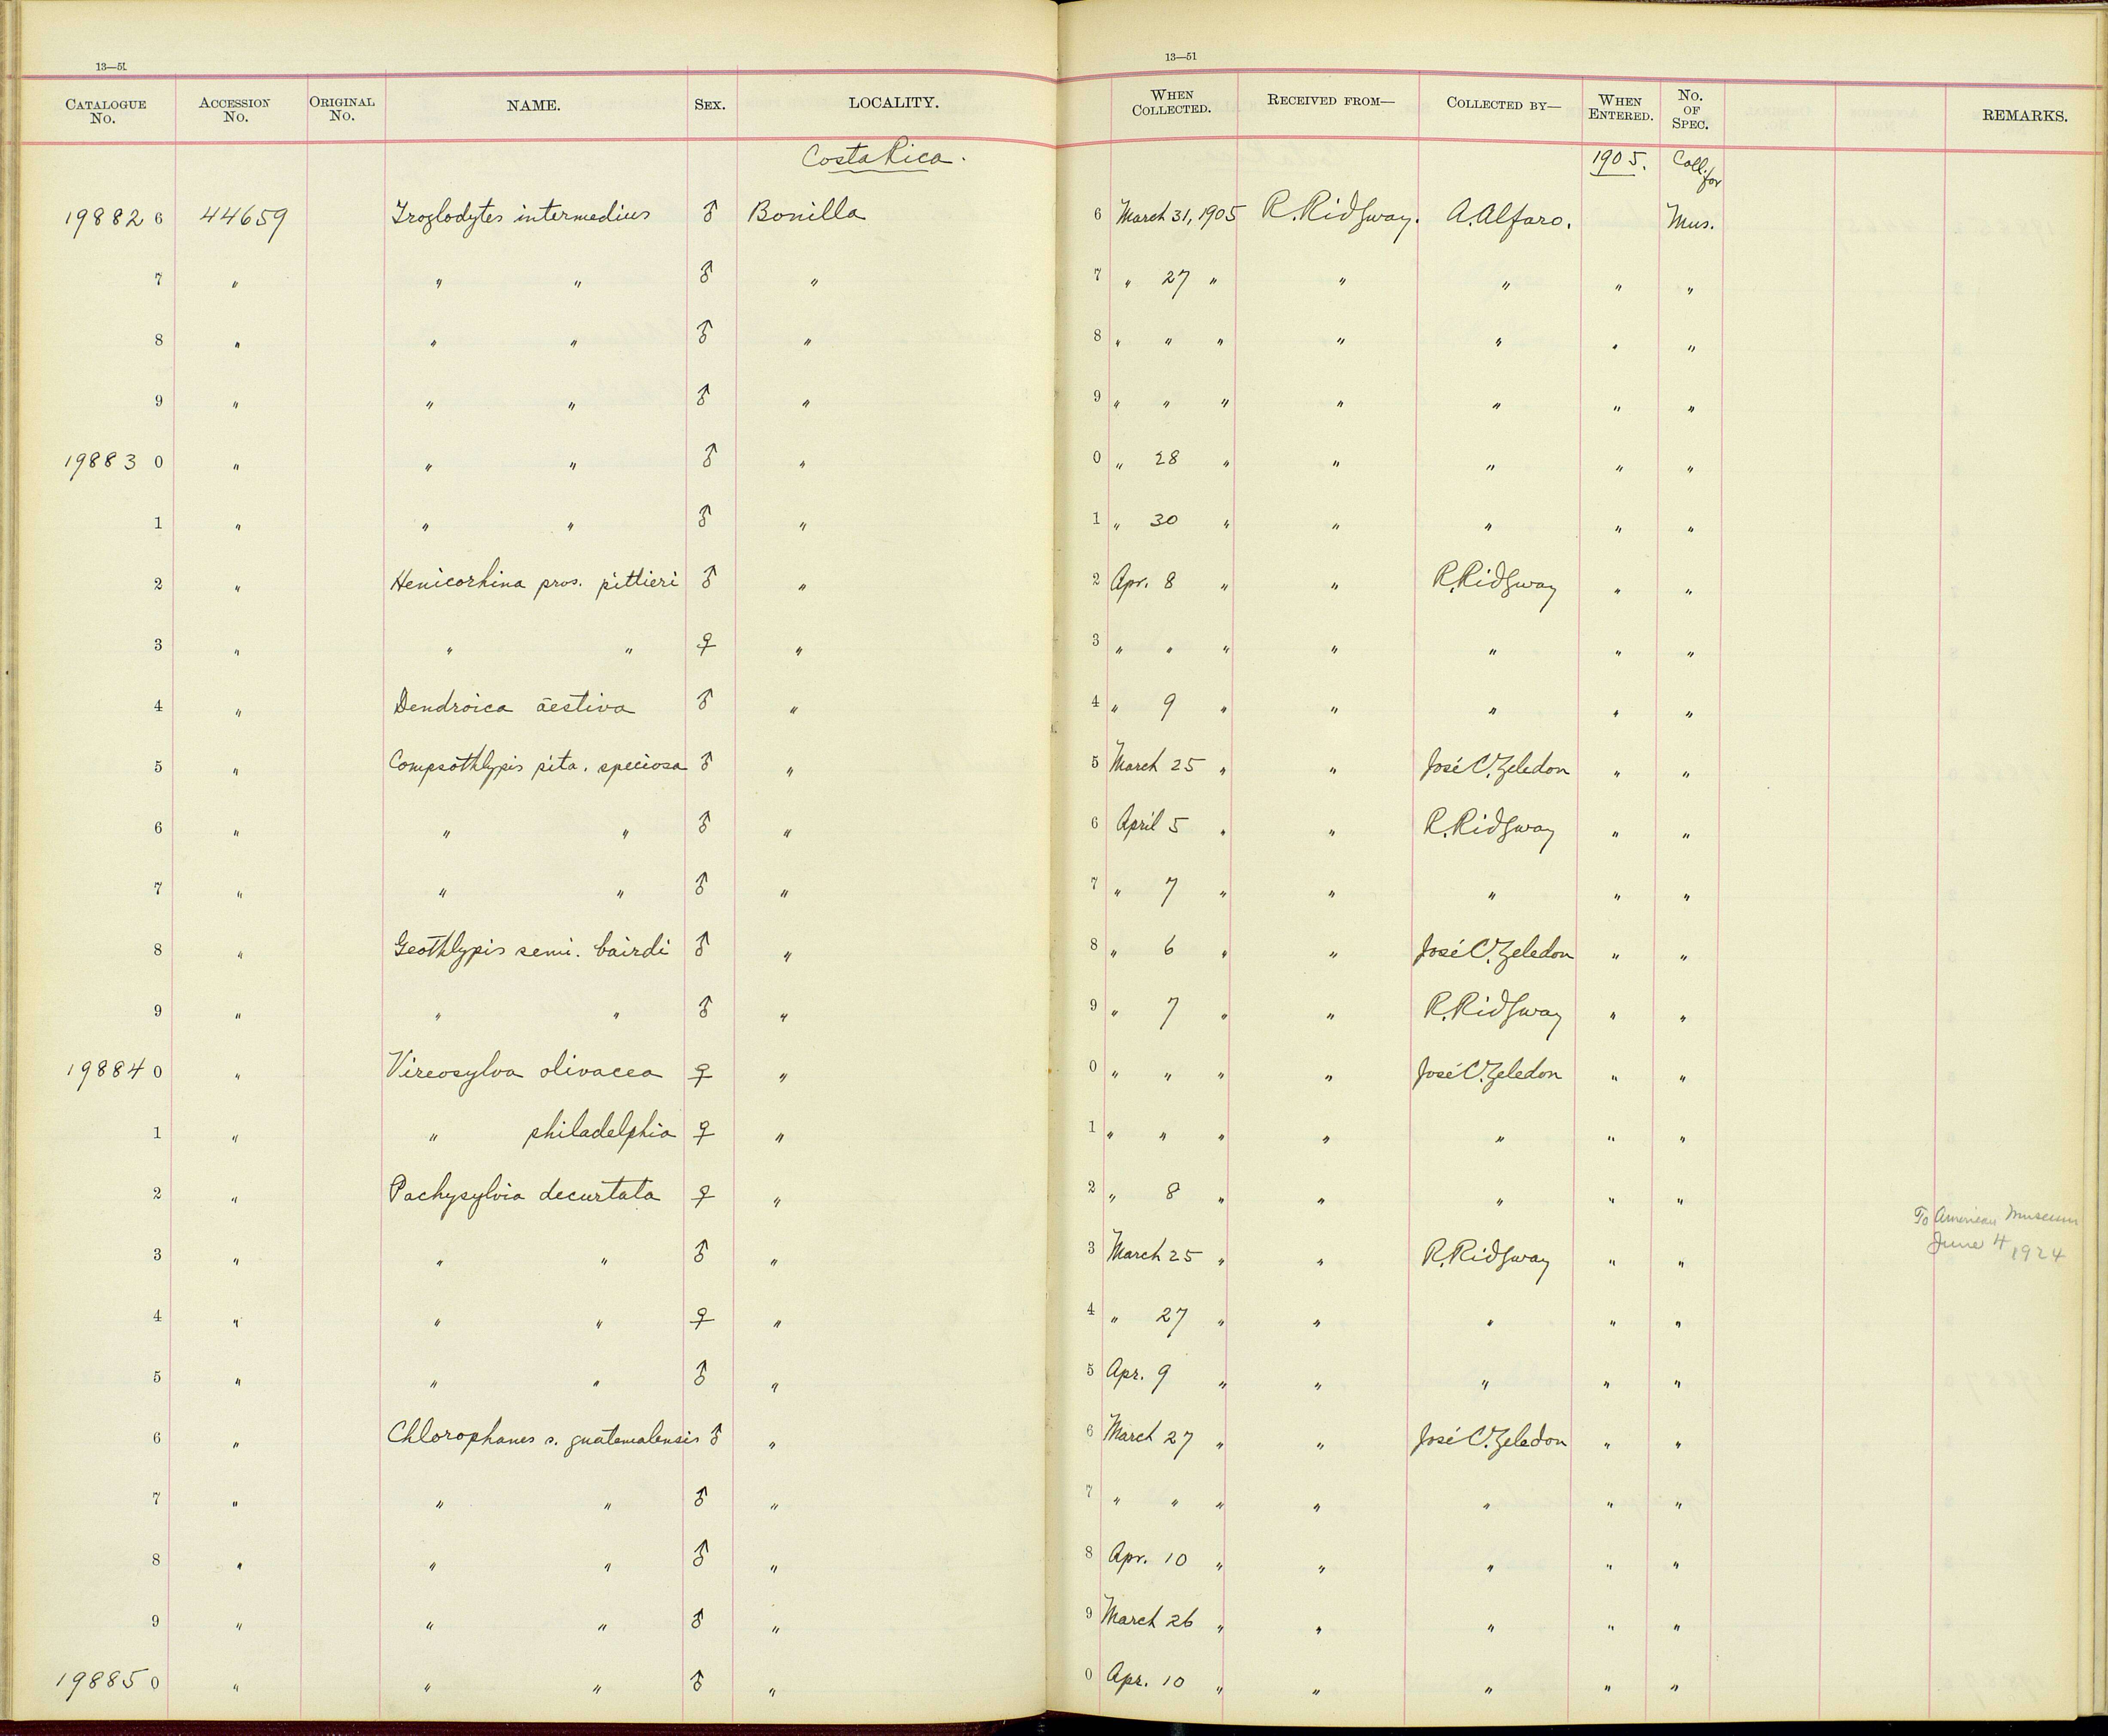 13—51 13—51
CATALOGUE No. ACCESSION No. ORIGINAL No. NAME. SEX. LOCALITY. WHEN COLLECTED. RECEIVED FROM— COLLECTED BY— WHEN ENTERED. No. OF SPEC. REMARKS.
Costa Rica. 1905. Coll. for
19882 6 44659 Troglodytes intermedius ♂ Bonilla 6 March 31, 1905 R. Ridgway. A. Alfaro. Mus.
7 " " " ♂ " 7 " 27 " " " " "
8 " " " ♂ " 8 " " " " " " "
9 " " " ♂ " 9 " " " " " " "
19883 0 " " " ♂ " 0 " 28 " " " " "
1 " " " ♂ " 1 " 30 " " " " "
2 " Henicorhina pros. pittieri ♂ " 2 Apr. 8 " " R. Ridgway " "
3 " " " ♀ " 3 " " " " " " "
4 " Dendroica aestiva ♂ " 4 " 9 " " " " "
5 " Compsothlypis pita. speciosa ♂ " 5 March 25 " " José C. Zeledon " "
6 " " " ♂ " 6 April 5 " " R. Ridgway " "
7 " " " ♂ " 7 " 7 " " " " "
8 " Geothlypis semi. bairdi ♂ " 8 " 6 " " José C. Zeledon " "
9 " " " ♂ " 9 " 7 " " R. Ridgway " "
19884 0 " Vireosylva olivacea ♀ " 0 " " " " José C. Zeledon " "
1 " " philadelphia ♀ " 1 " " " " " " "
2 " Pachysylvia decurtata ♀ " 2 " 8 " " " " "
3 " " " ♂ " 3 March 25 " " R. Ridgway " " To American Museum June 4 1924
4 " " " ♀ " 4 " 27 " " " " "
5 " " " ♂ " 5 Apr. 9 " " " " "
6 " Chlorophanes s. guatemalensis ♂ " 6 March 27 " " José C. Zeledon " "
7 " " " ♂ " 7 " " " " " " "
8 " " " ♂ " 8 Apr. 10 " " " " "
9 " " " ♂ " 9 March 26 " " " " "
19885 0 " " " ♂ " 0 Apr. 10 " " " " "